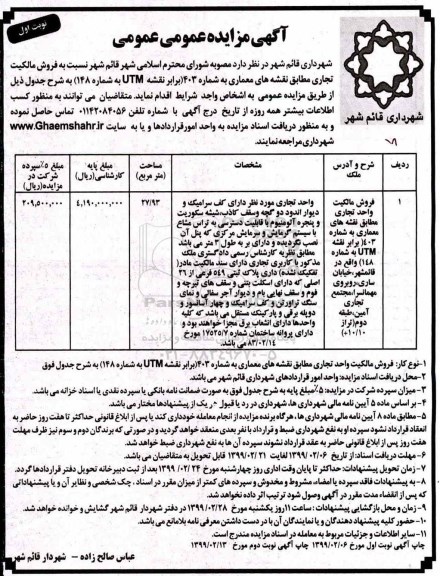 نوبت اول
آگهی مزایده عمومی عمومی
شهرداری قائم شهر
شهرداری قائم شهر در نظر دارد مصوبه شورای محترم اسلامی شهر قائم شهر نسبت به فروش مالکیت
تجاری مطابق نقشه های معماری به شماره ۴۰۳(برابر نقشه UTM به شماره ۱۴۸) به شرح جدول ذیل
از طریق مزایده عمومی به اشخاص واجد شرایط اقدام نماید. متقاضیان می توانند به منظور کسب
اطلاعات بیشتر همه روزه از تاریخ درج آگهی با شماره تلفن ۰۱۱۴۲۰۸۴۰۵۶ تماس حاصل نموده
و به منظور دریافت اسناد مزایده به واحد امور قراردادها و یا به سایت www.Ghaemshahr.ir
شهرداری مراجعه نمایند.
ردیف
شرح و آدرس ملک
مشخصات
مساحت (متر مربع)
مبلغ پایه کارشناسی(ریال)
مبلغ ۵٪ سپرده شرکت در مزایده(ریال)
۱
فروش مالکیت
واحد تجاری
مطابق نقشه های
معماری به شماره
۴۰۳( برابر نقشه
۱۴۸) واقع در
قائمشهر،خیابان
ساری،روبروی
مهمانسرا،مجتمع
تجاری
آمین،طبقه
دوم(تراز
+۱۰/۱۰)
واحد تجاری مورد نظر دارای کف سرامیک و
دیوار اندود دو گچه وسقف کاذب،شیشه سکوریت
و پنجره آلومینیوم با قابلیت دسترسی به تراس مشاع
با سیستم گرمایش و سرمایش مرکزی که پنل آن
نصب نگردیده و دارای بر به طول ۳ متر می باشد
مطابق نظریه کارشناس رسمی دادگستری ملک
مذکور با کاربری تجاری دارای سند مالکیت مادر(
تفکیک نشده) دارای پلاک ثبتی ۵۴۹ فرعی از ۲۶
اصلی که دارای اسکلت بتنی و سقف های تیرچه و
فوم و سقف نهایی بام و دیوار آجر سفالی و نمای
سنگ تراورتن و کف سرامیک و چهار آسانسور و
دوپله برقی و پارکینگ مستقل می باشد که کلیه
واحدها دارای انشعاب برق مجزا خواهند بود و
دارای پروانه ساختمان شماره ۱۷۵۲۵/۷ مورخ
۸۳/۰۲/۱۴ می باشد.
۲۷/۹۳
۴,۱۹۰,۰۰۰,۰۰۰
۲۰۹,۵۰۰,۰۰۰
۱-نوع کار: فروش مالکیت واحد تجاری مطابق نقشه های معماری به شماره ۴۰۳(برابر نقشه UTM به شماره ۱۴۸) به شرح جدول فوق
۲-محل دریافت اسناد مزایده: واحد امور قراردادهای شهرداری قائم شهر می باشد.
۳- میزان سپرده شرکت در مزایده: ۵٪مبلغ پایه به شرح جدول فوق به صورت ضمانت نامه بانکی یا سپرده نقدی یا اسناد خزانه می باشد.
۴- بر اساس ماده ۵ آیین نامه مالی شهرداری ها، شهرداری در رد یا قبول هر یک از پیشنهادها مختار می باشد.
۵-مطابق ماده ۸ آیین نامه مالی شهرداری ها، هرگاه برنده مزایده از انجام معامله خودداری کند یا پس از ابلاغ قانونی حداکثر تا هفت روز حاضر به
انعقاد قرارداد نشود سپرده او به نفع شهرداری ضبط و قرارداد با نفر بعدی منعقد خواهد گردید و در صورتی که برندگان دوم و سوم نیز ظرف مهلت
هفت روز پس از ابلاغ قانونی حاضر به عقد قرارداد نشوند سپرده آن ها به نفع شهرداری ضبط خواهد شد.
۶- مهلت دریافت اسناد: از تاریخ ۱۳۹۹/۰۲/۰۶ لغایت ۱۳۹۹/۰۲/۲۱ قابل تحویل به متقاضیان می باشد.
۷-زمان تحویل پیشنهادات: حداکثر تا پایان وقت اداری روز چهارشنبه مورخ ۱۳۹۹/۰۲/۲۴ بعد از ثبت دبیرخانه تحویل دفتر قراردادها گردد.
۸-به پیشنهادات فاقد سپرده یا امضاء، مشروط و مخدوش و سپرده های کمتر از میزان مقرر در اسناد، چک شخصی و نظایر آن و یا پیشنهاداتی
که پس از انقضاء مدت مقرر در آگهی وصول شود ترتیب اثر داده نخواهد شد.
۹-زمان و محل بازگشایی پیشنهادات: ساعت ۱۱ روز یکشنبه مورخ ۱۳۹۹/۰۲/۲۸ در دفتر شهردار قائم شهر گشایش و خوانده خواهد شد.
۱۰-حضور کلیه پیشنهاد دهندگان و یا نمایندگان آن با در دست داشتن معرفی نامه بلامانع می باشد.
۱۱-سایر اطلاعات و جزئیات مربوط به معامله در اسناد مزایده مندرج است.
چاپ آگهی نوبت اول مورخ ۱۳۹۹/۰۲/۰۶ چاپ آگهی نوبت دوم مورخ ۱۳۹۹/۰۲/۱۳
عباس صالح زاده – شهردار قائم شهر